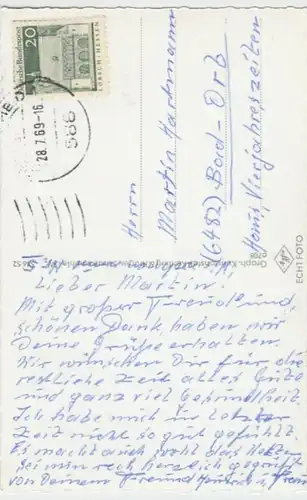 Deutsche Bundespost
20
LORSCH · HESSEN
28.7.69-16
588
Herrn
Martin Hartmann
(6482) Bad-Orb
Haus, Vierjahreszeiten
ECHT FOTO
Lieber Martin.
Mit großer Freude und,
schönen Dank haben wir
Deine Grüße erhalten.
Wir wünschen Dir für die
restliche Zeit alles Gute
und ganz viel Gesundheit.
Ich habe mich in letzter
Zeit nicht so gut gefühlt.
Es macht auch wohl das
Sei nun recht herzlich gegrüßt
von Deinem Freund u. Frau